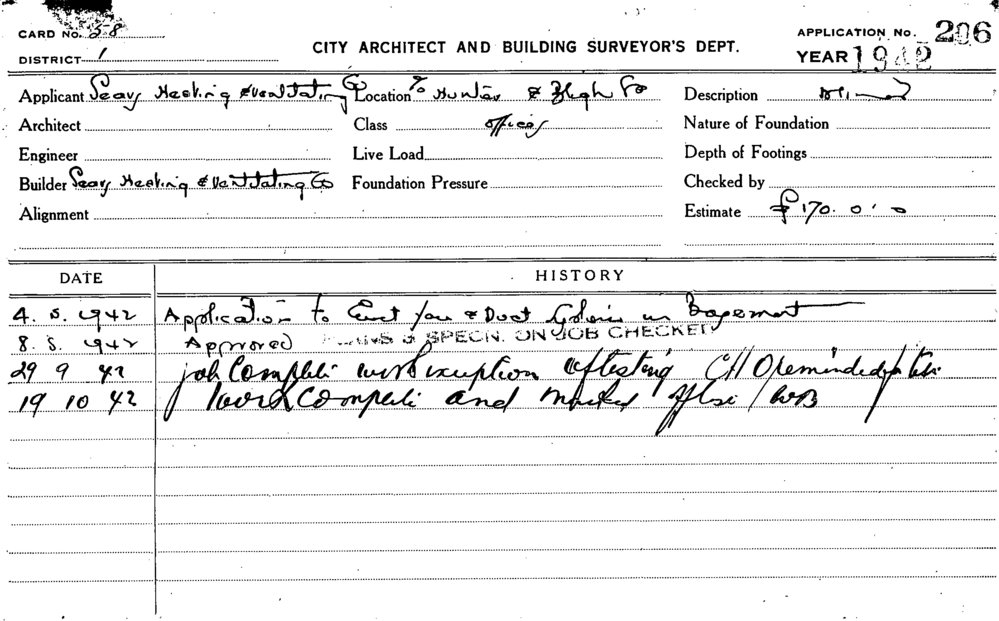 CARD No. 58
DISTRICT 1
CITY ARCHITECT AND BUILDING SURVEYOR'S DEPT.
APPLICATION No. 206
YEAR 1942
Applicant Sears Heating & Ventilating Co Location Hunter & Bligh Sts Description
Architect Class offices Nature of Foundation
Engineer Live Load Depth of Footings
Builder Sears Heating & Ventilating Co Foundation Pressure Checked by
Alignment Estimate £170. 0. 0
DATE HISTORY
4. 5. 1942 Application to Erect fan & Duct in Basement
8. 5. 1942 Approved PLANS & SPECN. ON JOB CHECKED
29 9 42 job Complete with exception of testing reminded
19 10 42 work Complete and marked